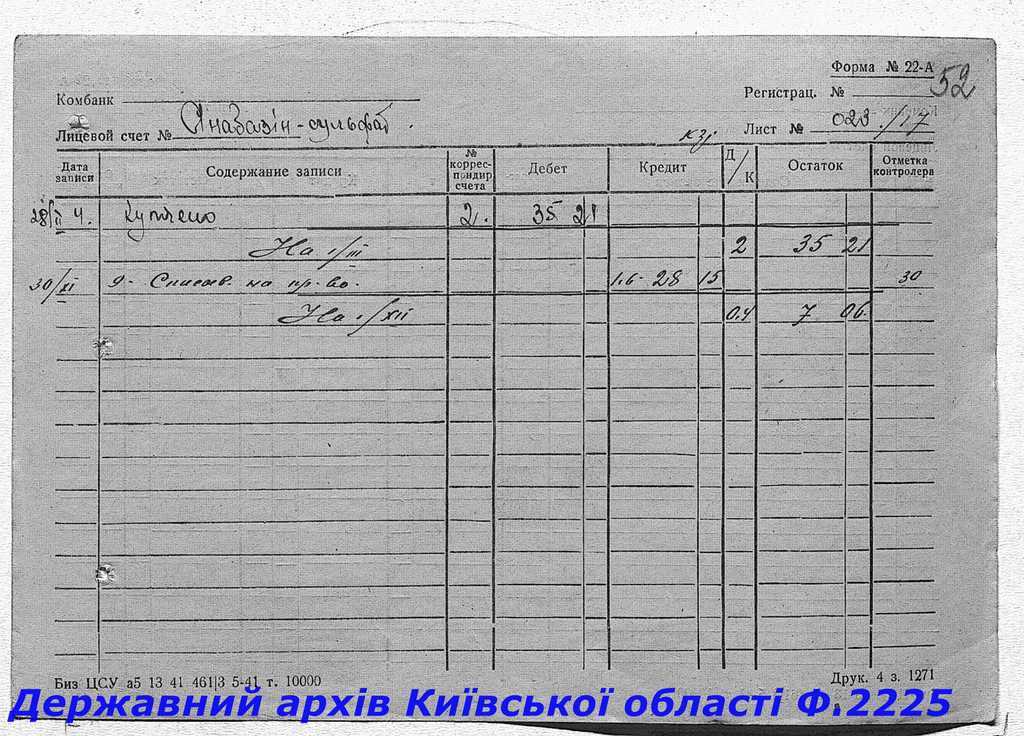 Форма № 22-А
52
Комбанк
Регистрац. №
Лицевой счет № Анабазін-сульфат.
кг.
Лист № 023/17
Дата записи
Содержание записи
№ коррес-пондир. счета
Дебет
Кредит
Д/К
Остаток
Отметка контролера
28/II 4. Куплено 2. 35 21
На 1/III 2 35 21
30/XI 9- Списав. на пр-во. 1.6- 28 15 30
На 1/XII 0.4 7 06
Биз ЦСУ а5 13 41 461|3 5-41 т. 10000
Друк. 4 з. 1271
Державний архів Київської області Ф.2225